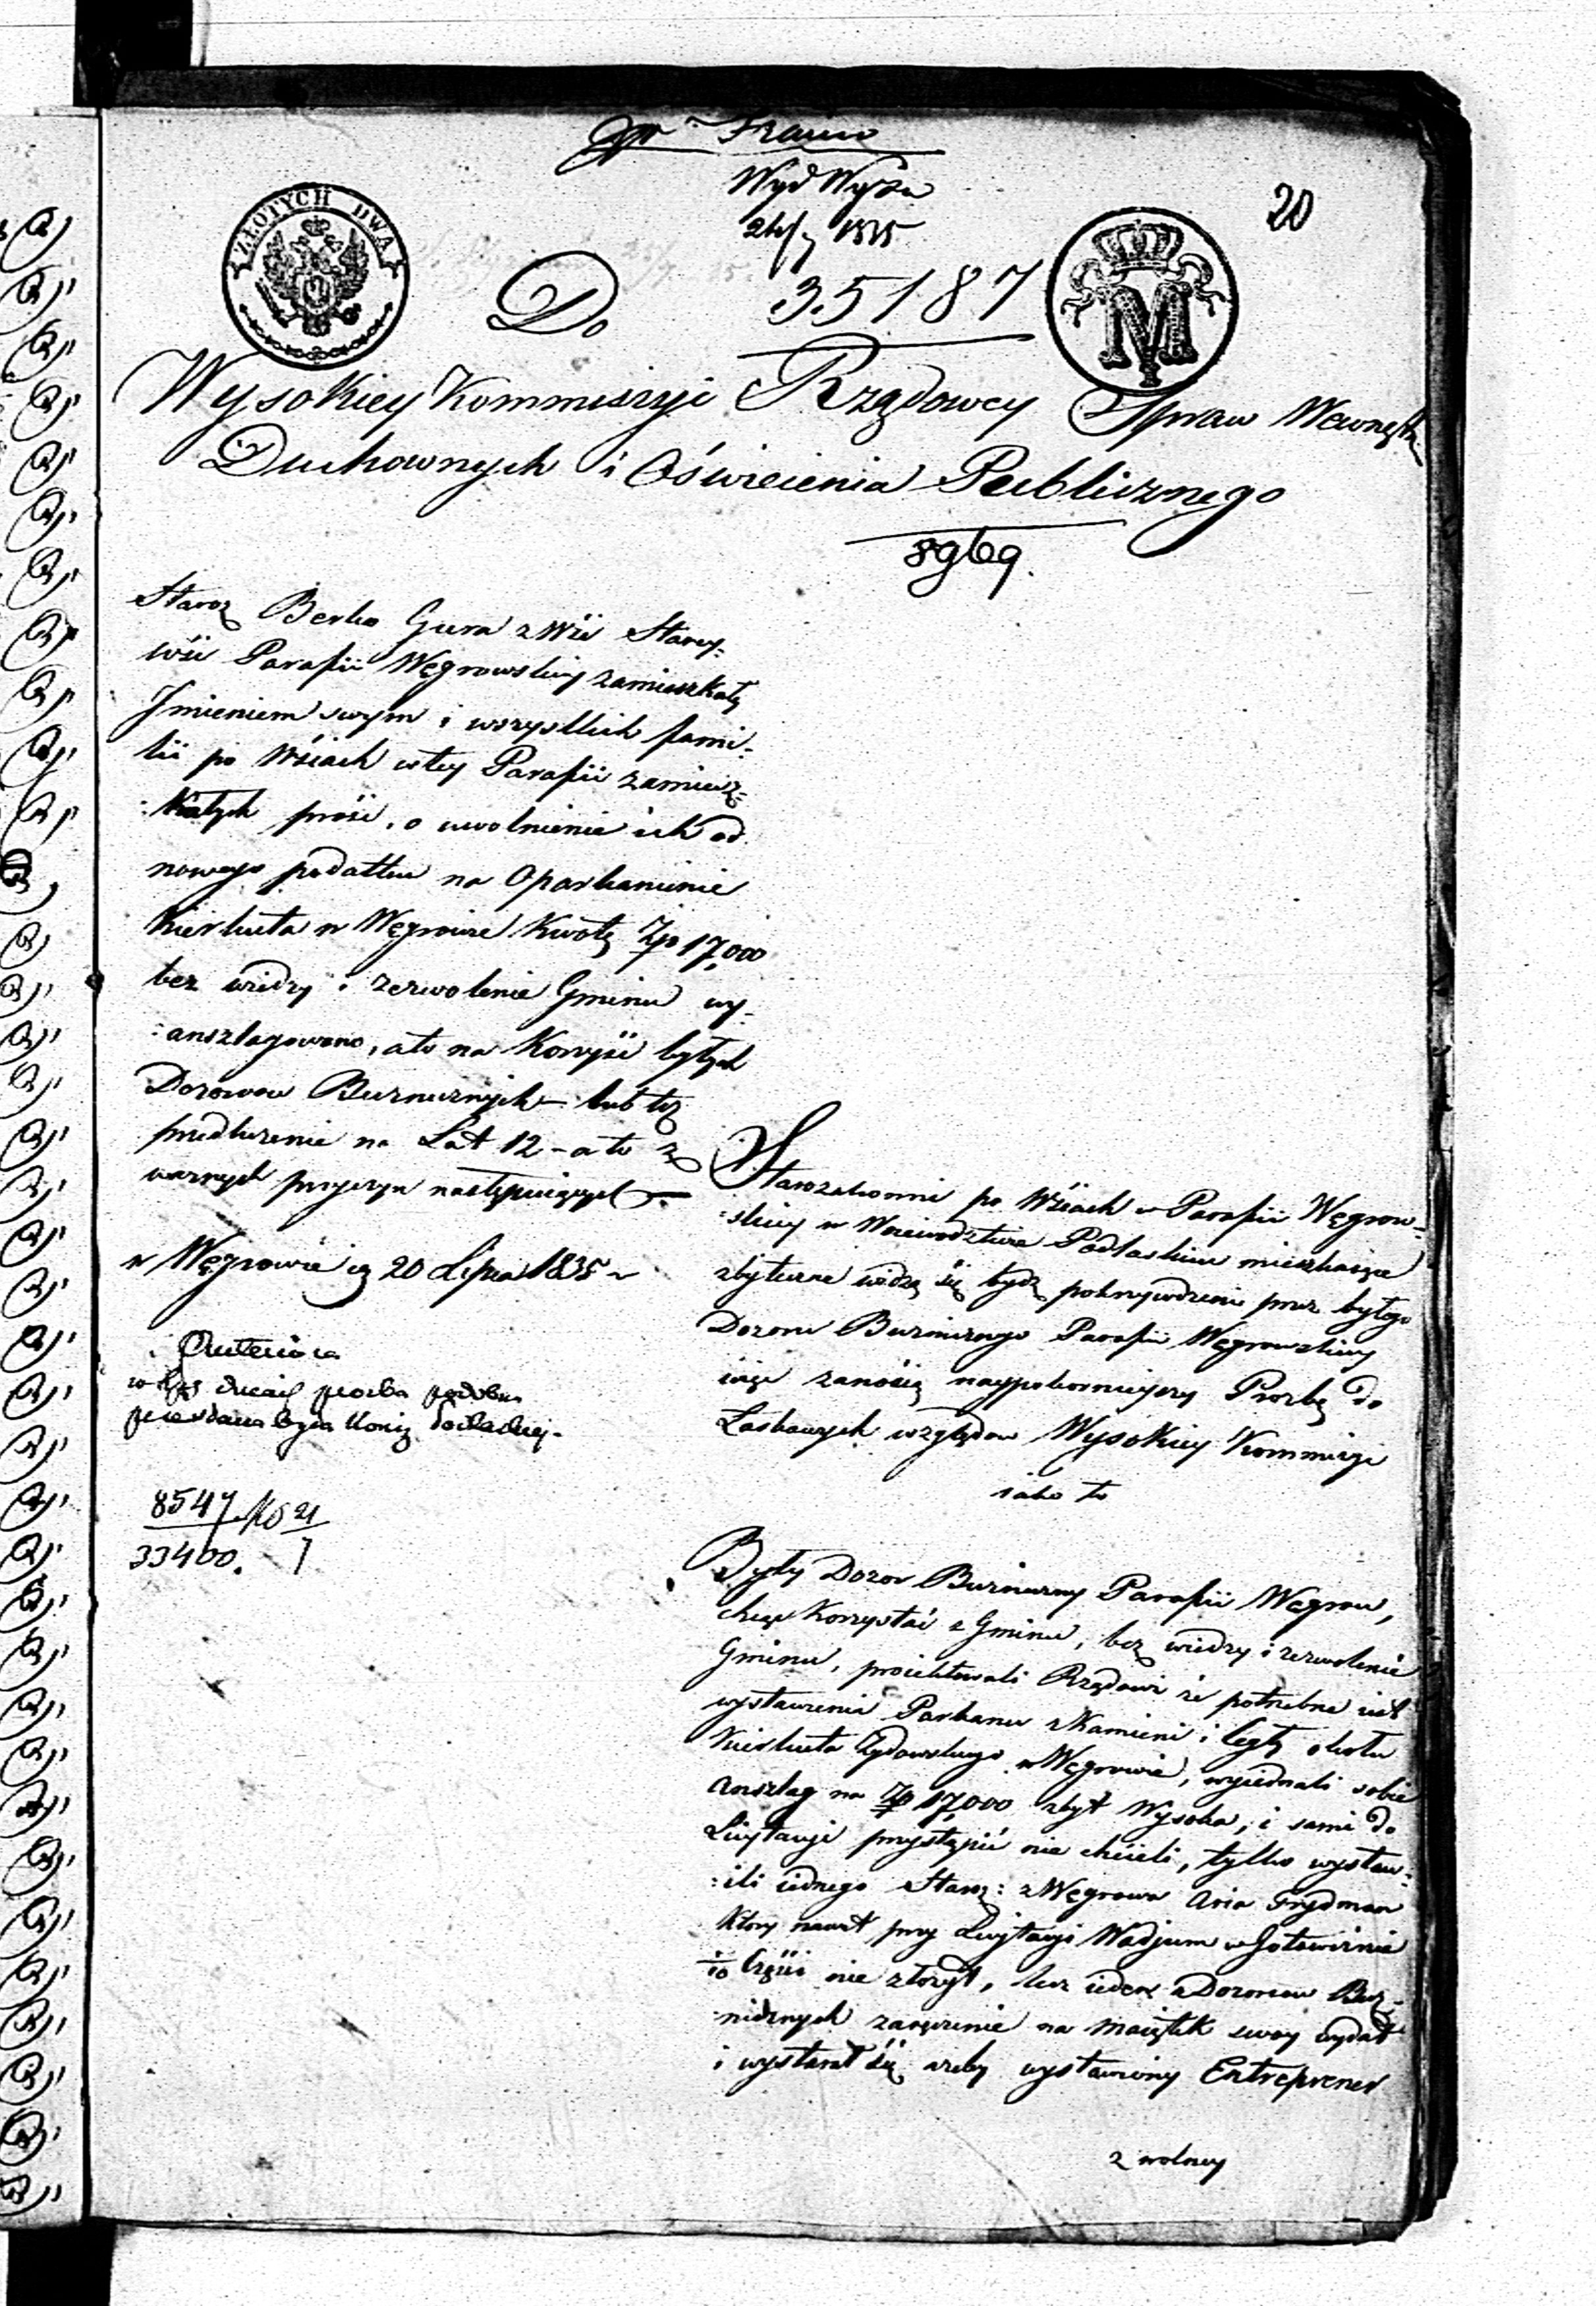 Wyd Wyzn
20
ZŁOTYCH DWA
Do
35187
M
Wysokiey Kommiszyi Rządowey Spraw Wewnętr
Duchownych i Oświecenia Publicznego
Staroz Berko Gura z Wsi Starey-
wśi Parafii Węgrowskiey zamieszkały
Imieniem swym i wszystkich fami-
lii po Wśiach w tey Parafii zamiesz-
:kałych prosi, o uwolnienie ich od
nowego podatku na Oparkanienie
Kierkuta w Węgrowie kwotę Zp 17,000
bez wiedzy i zezwolenie Gminu wy-
:anszlagowano, a to na Korzyśi byłych
Dozorow Buznicznych – lub też
przedłużenie na Lat 12 – a to z
ważnych przyczyn następuiących
w Węgrowie d 20 Lipca 1835
Starozakonni po Wśiach w Parafii Węgrow-
:skiey w Woiewodztwie Podlaskim mieszkaiące
zbyteczne widzą śię bydź pokrzywdzeni przez byłego
Dozoru Buznicznego Parafii Węgrowskiey
więc zanoszą naypokornieyszy Prozbę do
Łaskawych względow Wysokiey Kommiszyi
iako to
8547
33400.
Były Dozor Buzniczny Parafii Węgrow,
chcąc Korzystać z Gminu, bez wiedzy i zezwolenie
Gminu, proiektowali Rządowi że potrzebne iest
wystawienie Parkanu z Kamieni i Cegły około
Kierkuta Żydowskiego w Węgrowie, wyiednali sobie
anszlag na Zp 17,000 zbyt Wysoka, i sami do
Licytacyi przystąpić nie chcieli, tylko wystaw-
:ili iednego Staroz: z Węgrowa Aria Frydman
Ktory nawet przy Licytacyi Wadjum w Gotowiznie
1/10 Częśći nie złożył, lecz ieden z Dozorcow Buz-
:nicznych zaręczenie na Maiątek swoy wydał
i wystarał śię ażeby wystawiony Entreprener
z wolney